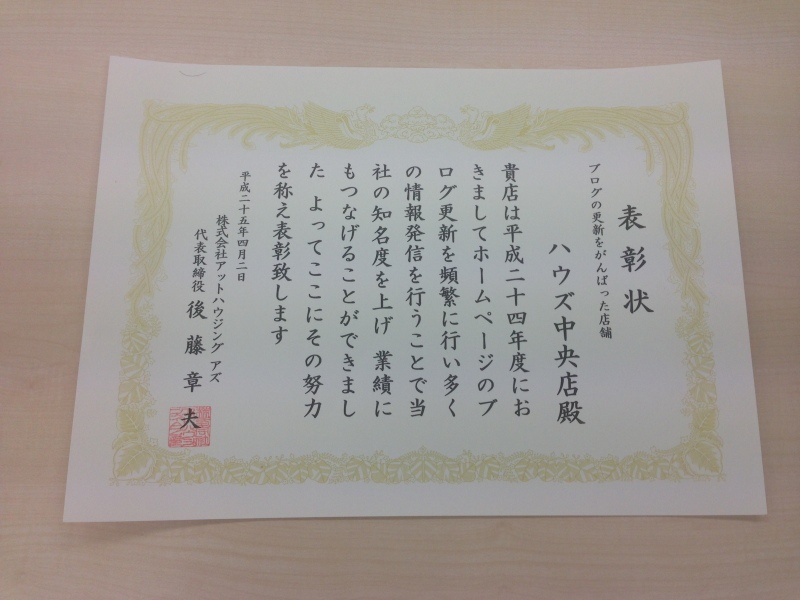 表彰状
ブログの更新をがんばった店舗
ハウズ中央店殿
貴店は平成二十四年度にお
きましてホームページのブ
ログ更新を頻繁に行い多く
の情報発信を行うことで当
社の知名度を上げ 業績に
もつなげることができまし
た よってここにその努力
を称え表彰致します
平成二十五年四月二日
株式会社アットハウジング アズ
代表取締役 後藤章夫